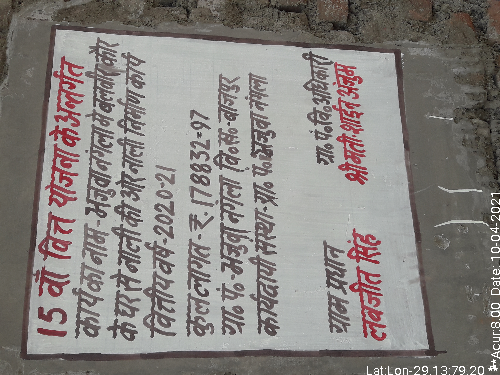 15 वाँ वित्त योजना के अन्तर्गत
कार्य का नाम - मजुवा नंगला मे बलवीर कौर
के घर से नाली की ओर नाली निर्माण कार्य
वित्तीय वर्ष - 2020-21
कुल लागत रु. 178832=97
ग्रा० पं० मजुवा नंगला वि० ख० बाजपुर
कार्यदायी संस्था - ग्रा० पं० मजुवा नंगला
ग्राम प्रधान
लवजीत सिंह
ग्रा० पं० वि० अधिकारी
श्रीमती शाईन अंजुम
Lat:Lon-29.13:79.20
**Acur:8.00 Date: 10-04-2021